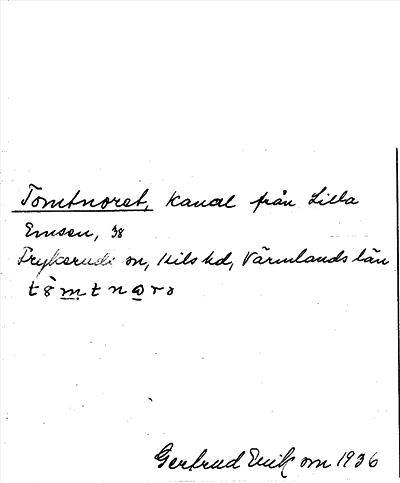 Tomtnoret, kanal från Lilla
Emsen, 38
Frykeruds sn, Kils hd, Värmlands län
Gertrud Erik om 1936